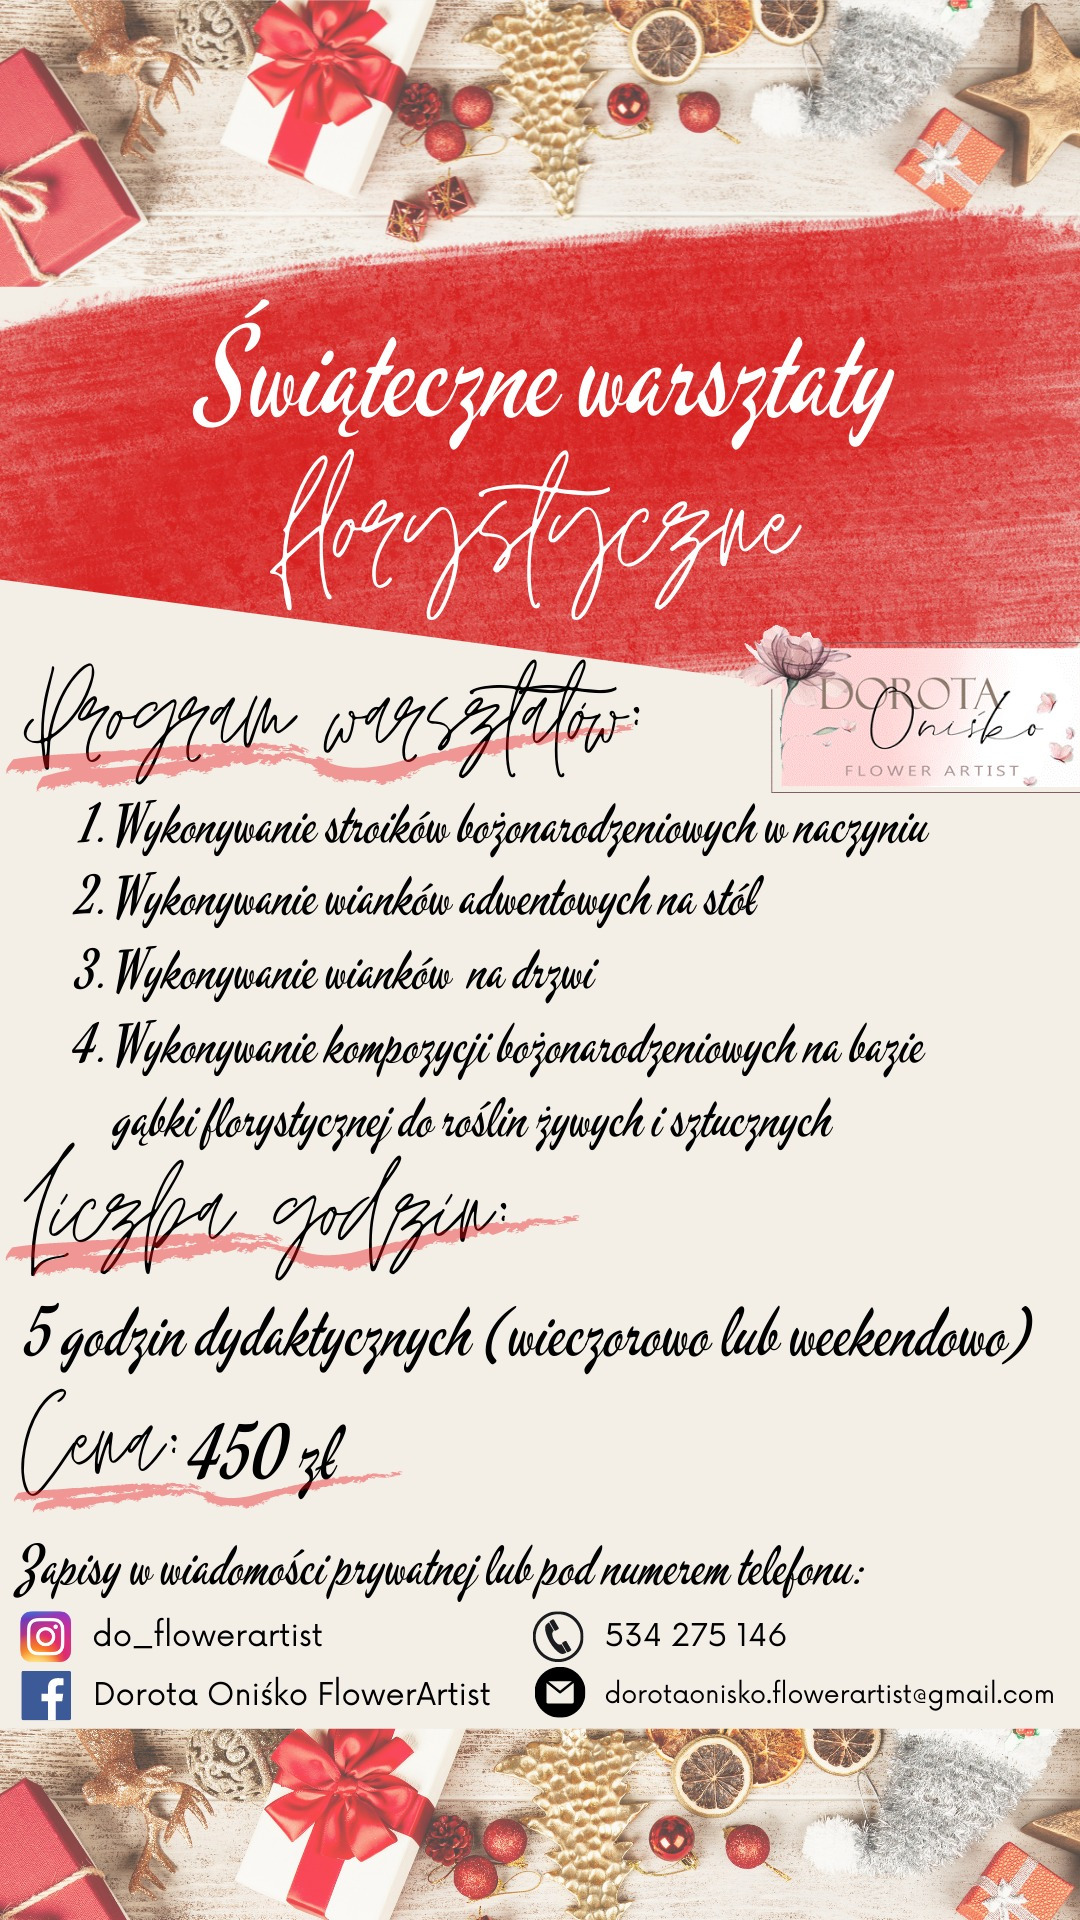 Świąteczne warsztaty
florystyczne
DOROTA
Oniśko
FLOWER ARTIST
Program warsztatów:
1. Wykonywanie stroików bożonarodzeniowych w naczyniu
2. Wykonywanie wianków adwentowych na stół
3. Wykonywanie wianków na drzwi
4. Wykonywanie kompozycji bożonarodzeniowych na bazie
gąbki florystycznej do roślin żywych i sztucznych
Liczba godzin:
5 godzin dydaktycznych (wieczorowo lub weekendowo)
Cena: 450 zł
Zapisy w wiadomości prywatnej lub pod numerem telefonu:
do_flowerartist
534 275 146
Dorota Oniśko FlowerArtist
dorotaonisko.flowerartist@gmail.com